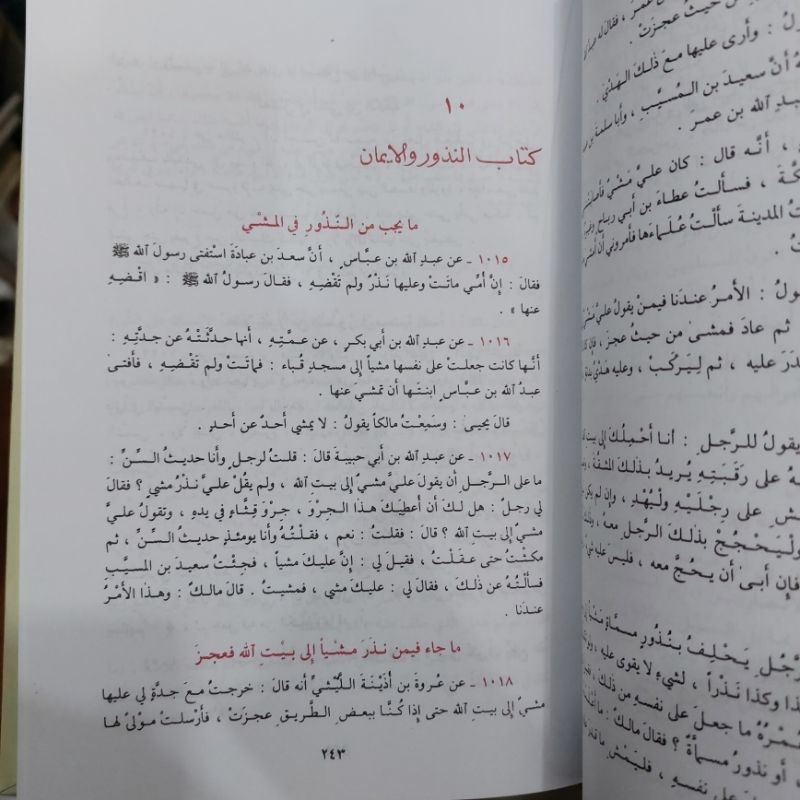 ١٠
كتاب النذور والايمان
ما يجب من النّذُورِ في المشْيِ
١٠١٥ - عن عبدِ الله بن عبَّاسٍ ، أنَّ سعدَ بن عبادَةَ اسْتفتى رسولَ الله ﷺ
فقالَ : إنَّ أُمِّي ماتَتْ وعليها نَذْرٌ ولم تَقْضِهِ ، فقالَ رسولُ الله ﷺ : « اقْضِهِ
عنها » .
١٠١٦ - عن عبدِ الله بن أبي بكرٍ ، عن عمَّتِهِ ، أنها حدَّثَتْهُ عن جدَّتِهِ :
أنَّها كانت جعلَتْ على نفسها مشياً إلى مسجدِ قُباء ، فماتَتْ ولم تَقْضِهِ ، فأفتىٰ
عبدُ الله بن عبَّاسٍ ابنتَها أن تمشيَ عنها .
قالَ يحيىٰ : وسَمِعْتُ مالكاً يقولُ : لا يمشي أحدٌ عن أحدٍ .
١٠١٧ - عن عبدِ الله بن أبي حبيبةَ قالَ : قلتُ لرجلٍ وأنا حديثُ السِّنِّ :
ما على الرَّجلِ أن يقولَ عليَّ مشيٌ إلى بيتِ الله ، ولم يقُلْ عليَّ نذْرُ مشي ؟ فقالَ
لي رجلٌ : هل لكَ أن أُعطيَكَ هذا الجِرْوَ ، جرْوَ قِثَّاءٍ في يدهِ ، وتقولُ عليَّ
مشيٌ إلى بيتِ الله ؟ قالَ : فقلتُ : نعم ، فقلْتُهُ وأنا يومئذٍ حديثُ السِّنِّ ، ثم
مكثْتُ حتى عقَلْتُ ، فقيلَ لي : إنَّ عليكَ مشياً ، فجئْتُ سعيدَ بن المسيَّبِ
فسألْتُهُ عن ذلكَ ، فقالَ لي : عليكَ مشي ، فمشيتُ . قالَ مالكٌ : وهذا الأمْرُ
عندَنا .
ما جاء فيمن نذَرَ مشْياً إلى بيْتِ الله فعجزَ
١٠١٨ - عن عروةَ بن أُذَيْنَةَ اللَّيْثيِّ أنه قالَ : خرجتُ معَ جدَّةٍ لي عليها
مشيٌ إلى بيتِ الله حتى إذا كُنَّا ببعضِ الطَّريقِ عجزَتْ ، فأرسلَتْ مولىً لها
٢٤٣
من حيثُ عجزَتْ .
: وأرى عليها معَ ذلكَ الهَدْيَ .
أنَّ سعيدَ بن المُسيَّبِ ، وأبا سلمةَ بن
الله بن عمرَ .
، أنَّه قالَ : كان عليَّ مشْيٌ
، فسألتُ عطاءَ بن أبي رباحٍ
المدينةَ سألْتُ عُلماءَها فأمروني أن أمشيَ
: الأمرُ عندَنا فيمنْ يقولُ عليَّ
ثم عادَ فمشىٰ من حيثُ عجزَ ، فإن كانَ
عليه ، ثم ليَركَبْ ، وعليه هَدْيُ
يقولُ للرَّجلِ : أنا أحملُكَ إلى بيتِ
على رقبَتِهِ يُريدُ بذلكَ المشقَّةَ
على رِجْلَيْهِ ولْيُهْدِ ، وإن لم يكن
ولْيَحْجُجْ بذلكَ الرَّجلِ معه ،
فإن أبىٰ أن يحُجَّ معه ، فليسَ عليه
يَحْلِفُ بنُذُورٍ مسمَّاةٍ
وكذا نَذْراً ، لشيءٍ لا يقوى عليه
ما جعلَ على نفسِهِ من ذلكَ
، أو نذورٌ مسمَّاةٌ ؟ فقالَ مالكٌ :
على نفسِهِ ، فليَمْشِ ما